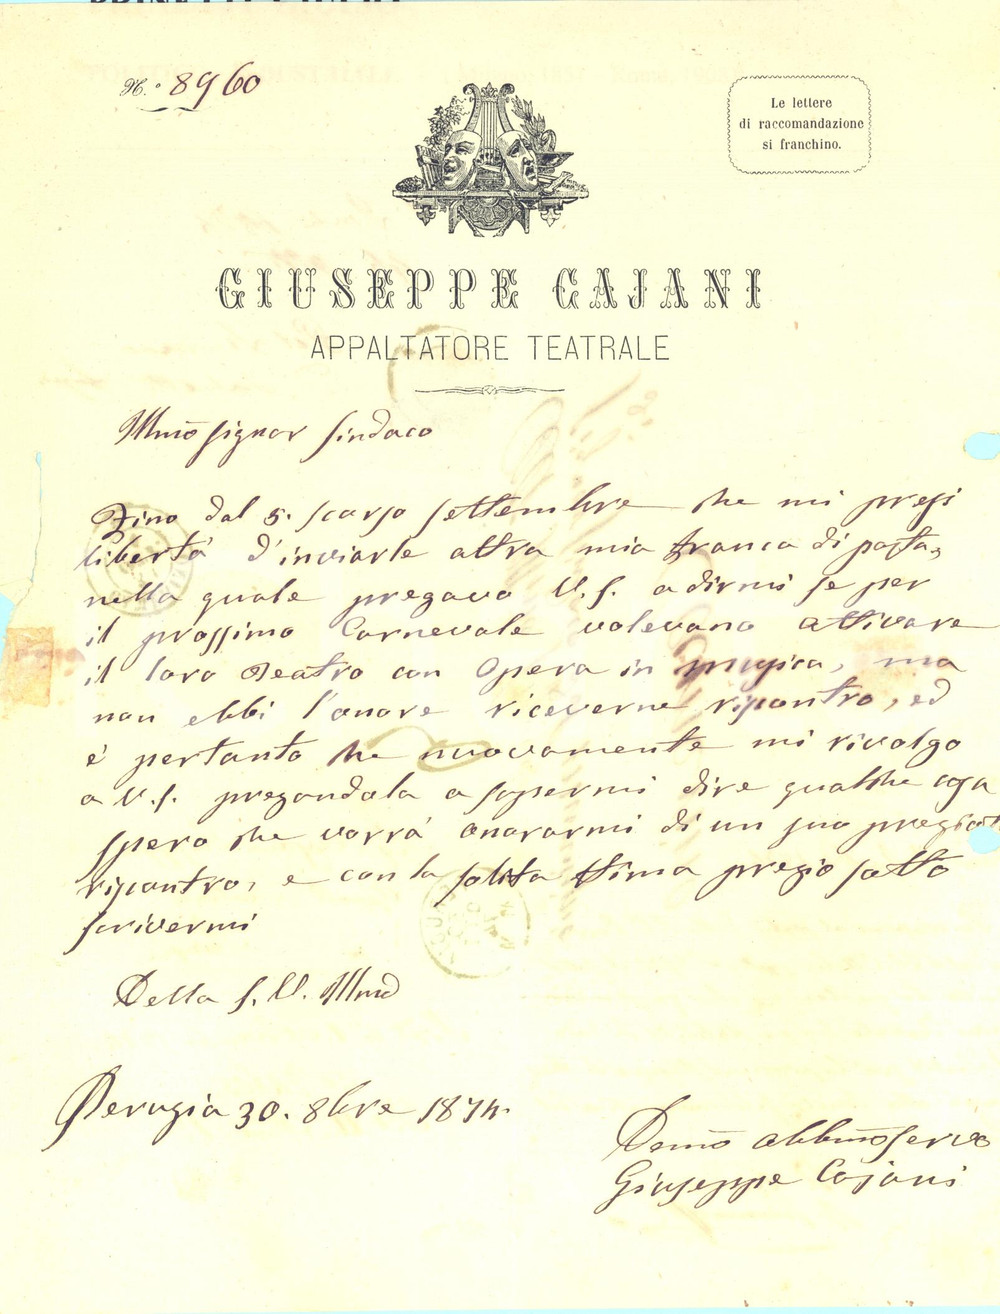 N.° 8960
Le lettere
di raccomandazione
si franchino.
GIUSEPPE CAJANI
APPALTATORE TEATRALE
Illmo Signor Sindaco
Fino dal 5. scorso settembre che mi presi
libertà d'inviarle altra mia franca di posta,
nella quale pregavo V.S. a dirmi se per
il prossimo Carnevale volevano attivare
il loro Teatro con Opera in musica, ma
non ebbi l'onore riceverne riscontro, ed
è pertanto che nuovamente mi rivolgo
a V.S. pregandola a sapermi dire qualche cosa
spero che vorrà onorarmi di un suo pregiato
riscontro, e con la solita stima pregio sotto
scrivermi
Della S.V. Illma
Perugia 30. 8bre 1874.
Demo obbmo servo
Giuseppe Cajani